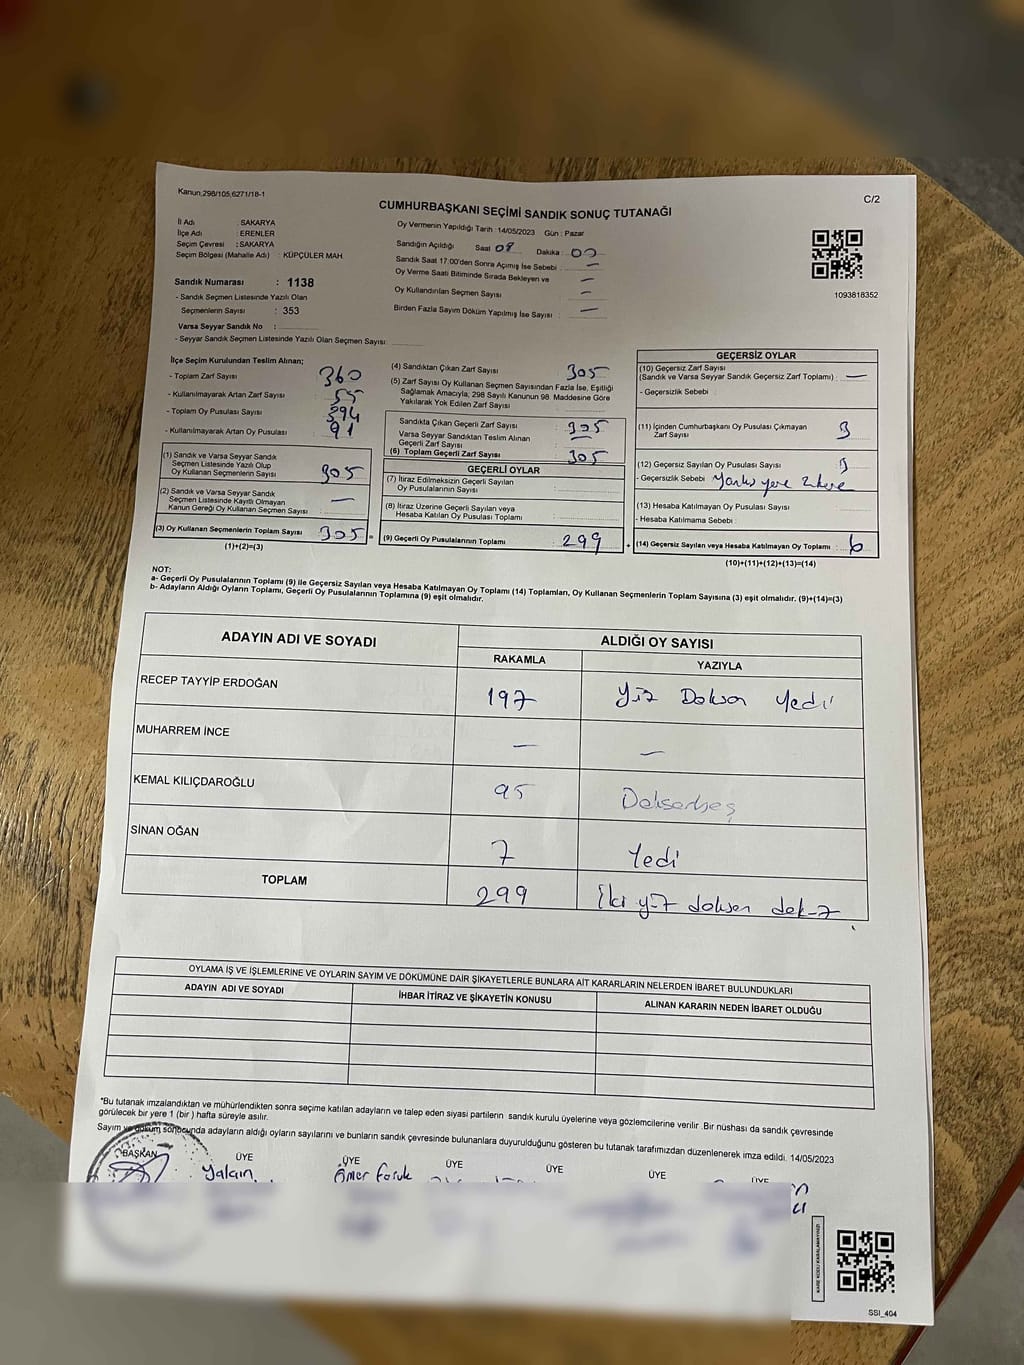 Kanun;298/105,6271/18-1
C/2
CUMHURBAŞKANI SEÇİMİ SANDIK SONUÇ TUTANAĞI
İl Adı SAKARYA
İlçe Adı : ERENLER
Seçim Çevresi : SAKARYA
Seçim Bölgesi (Mahalle Adı) : KÜPÇÜLER MAH.
Sandık Numarası : 1138
- Sandık Seçmen Listesinde Yazılı Olan
Seçmenlerin Sayısı : 353
Varsa Seyyar Sandık No :
- Seyyar Sandık Seçmen Listesinde Yazılı Olan Seçmen Sayısı:
Oy Vermenin Yapıldığı Tarih : 14/05/2023 Gün : Pazar
Sandığın Açıldığı Saat 08 Dakika : 00
Sandık Saat 17:00'den Sonra Açımış İse Sebebi : —
Oy Verme Saati Bitiminde Sırada Bekleyen ve —
Oy Kullandırılan Seçmen Sayısı : —
Birden Fazla Sayım Döküm Yapılmış İse Sayısı : —
1093818352
İlçe Seçim Kurulundan Teslim Alınan;
- Toplam Zarf Sayısı 360
- Kullanılmayarak Artan Zarf Sayısı 55
- Toplam Oy Pusulası Sayısı 394
- Kullanılmayarak Artan Oy Pusulası 91
(1) Sandık ve Varsa Seyyar Sandık
Seçmen Listesinde Yazılı Olup
Oy Kullanan Seçmenlerin Sayısı 305
(2) Sandık ve Varsa Seyyar Sandık
Seçmen Listesinde Kayıtlı Olmayan
Kanun Gereği Oy Kullanan Seçmen Sayısı —
(3) Oy Kullanan Seçmenlerin Toplam Sayısı 305 =
(1)+(2)=(3)
(4) Sandıktan Çıkan Zarf Sayısı 305
(5) Zarf Sayısı Oy Kullanan Seçmen Sayısından Fazla İse, Eşitliği
Sağlamak Amacıyla, 298 Sayılı Kanunun 98. Maddesine Göre
Yakılarak Yok Edilen Zarf Sayısı
Sandıkta Çıkan Geçerli Zarf Sayısı : 305
Varsa Seyyar Sandıktan Teslim Alınan
Geçerli Zarf Sayısı —
(6) Toplam Geçerli Zarf Sayısı : 305
GEÇERLİ OYLAR
(7) İtiraz Edilmeksizin Geçerli Sayılan
Oy Pusulalarının Sayısı
(8) İtiraz Üzerine Geçerli Sayılan veya
Hesaba Katılan Oy Pusulası Toplamı
(9) Geçerli Oy Pusulalarının Toplamı 299 +
GEÇERSİZ OYLAR
(10) Geçersiz Zarf Sayısı
(Sandık ve Varsa Seyyar Sandık Geçersiz Zarf Toplamı) : —
- Geçersizlik Sebebi :
(11) İçinden Cumhurbaşkanı Oy Pusulası Çıkmayan
Zarf Sayısı 3
(12) Geçersiz Sayılan Oy Pusulası Sayısı : 3
- Geçersizlik Sebebi
(13) Hesaba Katılmayan Oy Pusulası Sayısı
- Hesaba Katılmama Sebebi :
(14) Geçersiz Sayılan veya Hesaba Katılmayan Oy Toplamı : 6
(10)+(11)+(12)+(13)=(14)
NOT:
a- Geçerli Oy Pusulalarının Toplamı (9) ile Geçersiz Sayılan veya Hesaba Katılmayan Oy Toplamı (14) Toplamları, Oy Kullanan Seçmenlerin Toplam Sayısına (3) eşit olmalıdır. (9)+(14)=(3)
b- Adayların Aldığı Oyların Toplamı, Geçerli Oy Pusulalarının Toplamına (9) eşit olmalıdır.
ADAYIN ADI VE SOYADI ALDIĞI OY SAYISI
RAKAMLA YAZIYLA
RECEP TAYYİP ERDOĞAN 197 Yüz Doksan Yedi
MUHARREM İNCE — —
KEMAL KILIÇDAROĞLU 95 Doksanbeş
SİNAN OĞAN 7 Yedi
TOPLAM 299 İki yüz doksan dokuz
OYLAMA İŞ VE İŞLEMLERİNE VE OYLARIN SAYIM VE DÖKÜMÜNE DAİR ŞİKAYETLERLE BUNLARA AİT KARARLARIN NELERDEN İBARET BULUNDUKLARI
ADAYIN ADI VE SOYADI İHBAR İTİRAZ VE ŞİKAYETİN KONUSU ALINAN KARARIN NEDEN İBARET OLDUĞU
*Bu tutanak imzalandıktan ve mühürlendikten sonra seçime katılan adayların ve talep eden siyasi partilerin sandık kurulu üyelerine veya gözlemcilerine verilir .Bir nüshası da sandık çevresinde
görülecek bir yere 1 (bir ) hafta süreyle asılır.
Sayım ve döküm sonucunda adayların aldığı oyların sayılarını ve bunların sandık çevresinde bulunanlara duyurulduğunu gösteren bu tutanak tarafımızdan düzenlenerek imza edildi. 14/05/2023
BAŞKAN ÜYE ÜYE ÜYE ÜYE ÜYE ÜYE
Yalçın Ömer Faruk
KARE KODU KARALAMAYINIZ!
SSI_404